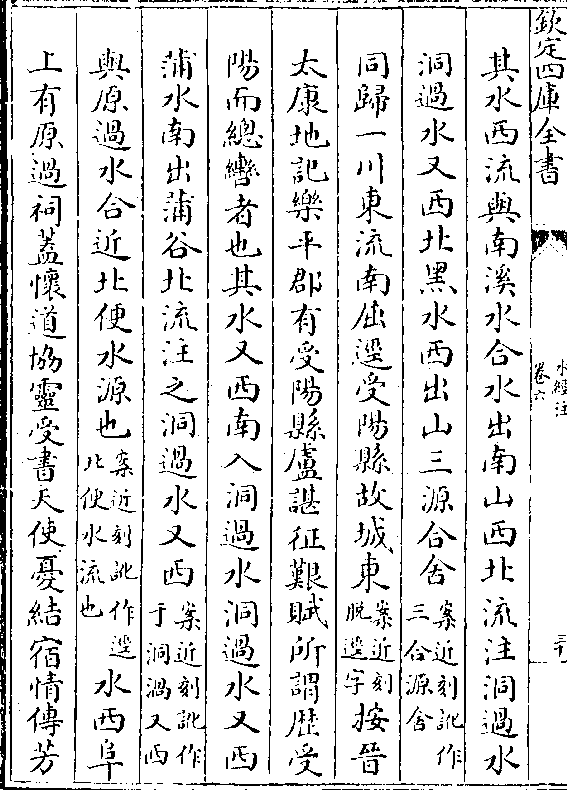 欽定四庫全書
水經注
卷六
其水西流與南溪水合水出南山西北流注洞過水
洞過水又西北黑水西出山三源合舍案近刻訛作三合源舍
同歸一川東流南屈逕受陽縣故城東案近刻脫逕字按晉
太康地記樂平郡有受陽縣盧諶征艱賦所謂歴受
陽而總轡者也其水又西南入洞過水洞過水又西
蒲水南出蒲谷北流注之洞過水又西案近刻訛作于洞渦又西
與原過水合近北便水源也案近刻訛作逕北便水流也水西阜
上有原過祠蓋懷道協靈受書天使憂結宿情傳芳